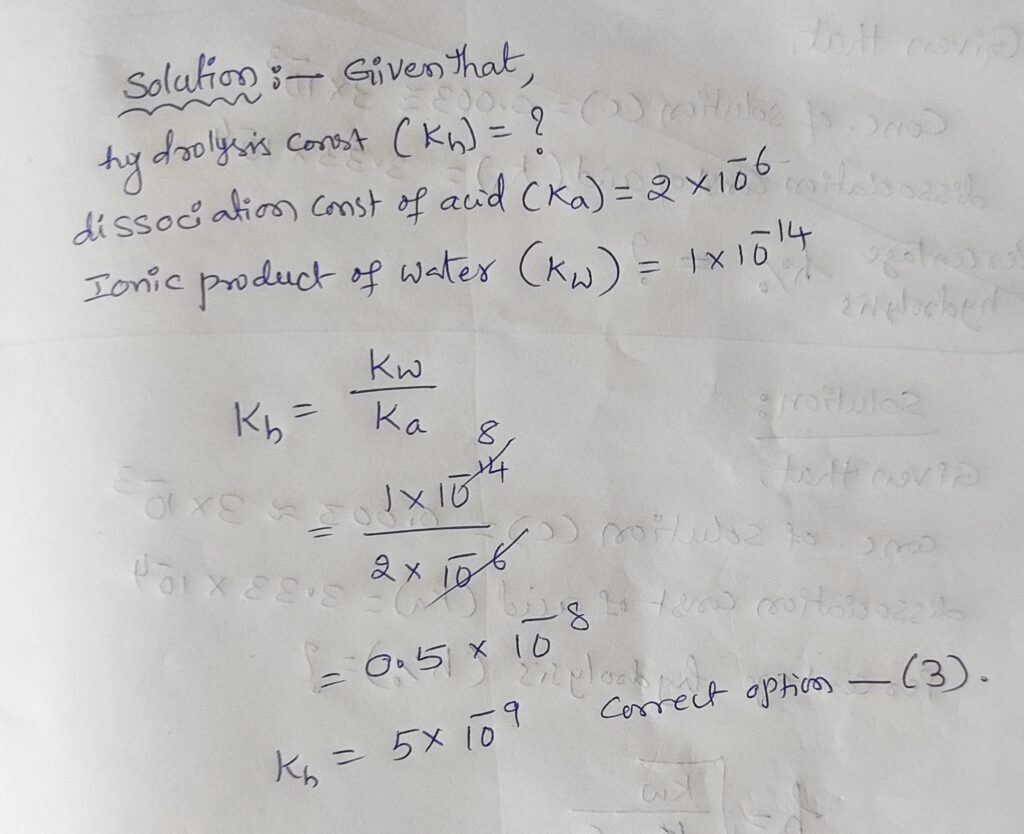 Solution :- Given that,
hydrolysis const (Kh) = ?
dissociation const of acid (Ka) = 2 × 10⁻⁶
Ionic product of water (Kw) = 1 × 10⁻¹⁴
Kh = Kw / Ka
= 1 × 10⁻¹⁴ 8 / 2 × 10⁻⁶
= 0.51 × 10⁻⁸
Kh = 5 × 10⁻⁹ Correct option — (3).